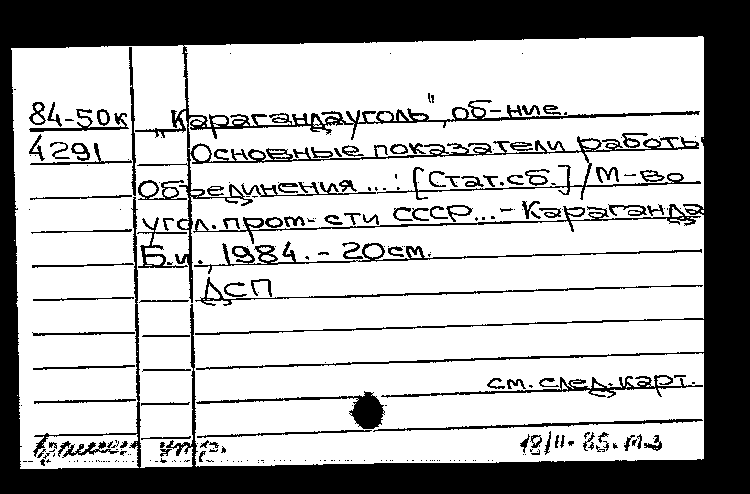 84-50к „Карагандауголь", об-ние.
4291 Основные показатели работы
объединения ... : [Стат. сб.] / М-во
угол. пром-сти СССР... - Караганда
Б.и., 1984. - 20 см.
ДСП
см. след. карт.
утр. 18/II-85. М.З